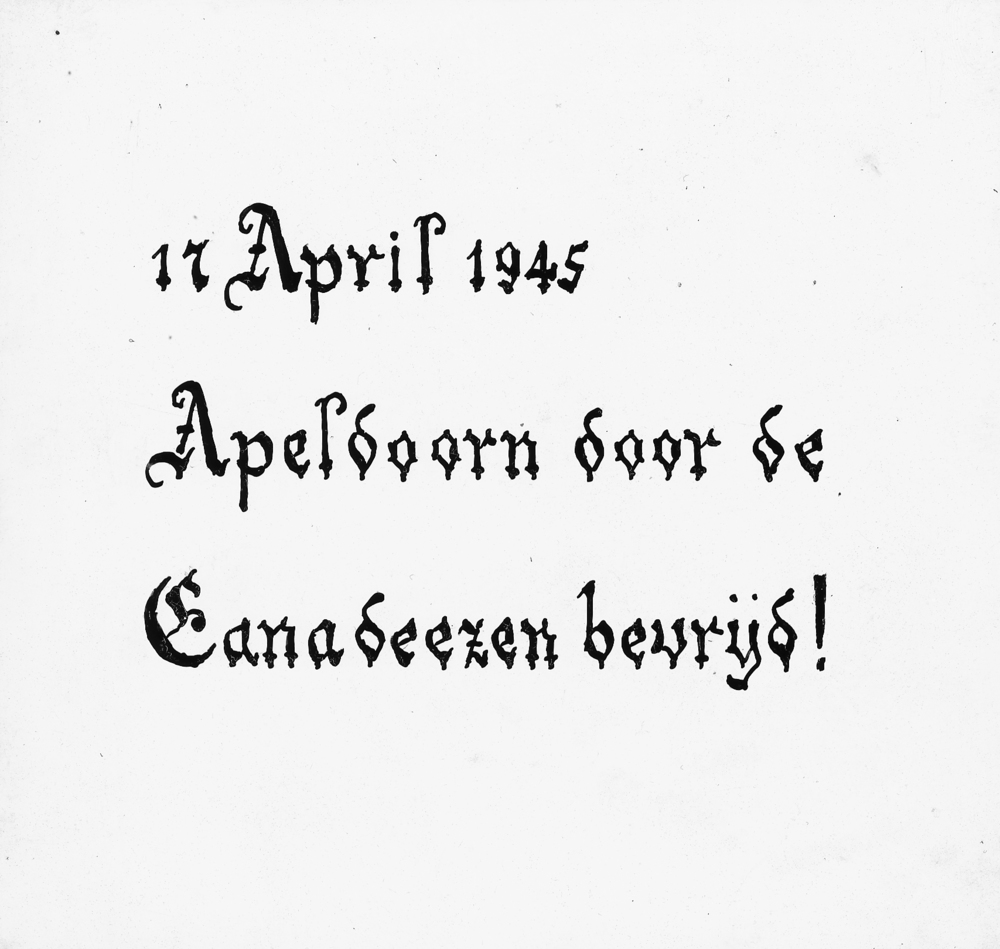 17 April 1945
Apeldoorn door de
Canadeezen bevrijd!